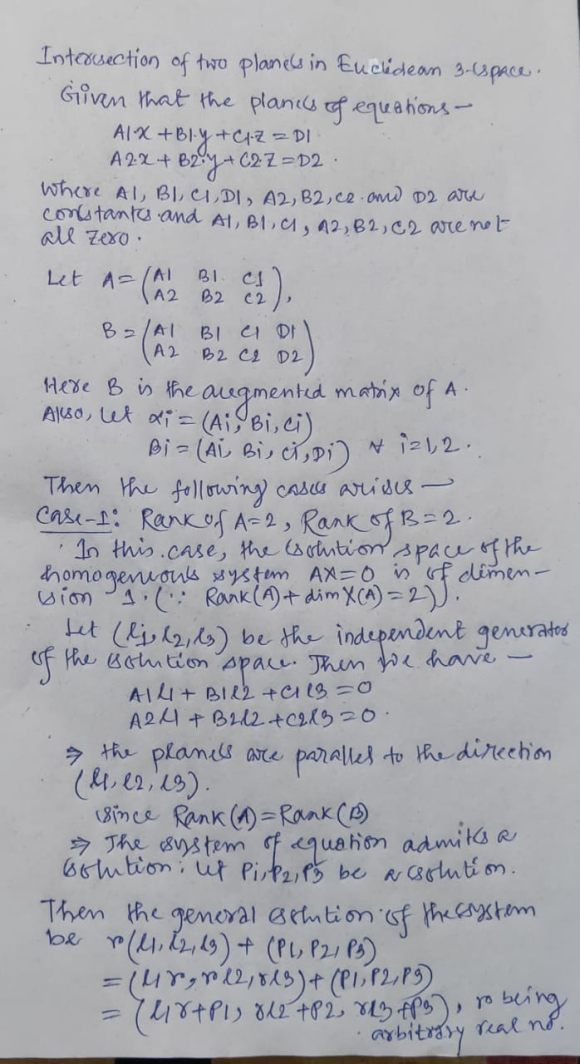 Intersection of two planes in Euclidean 3-space.
Given that the planes of equations -
A1·x + B1·y + C1·z = D1
A2x + B2·y + C2z = D2 .
where A1, B1, C1, D1, A2, B2, C2 and D2 are
constants and A1, B1, C1, A2, B2, C2 are not
all zero.
Let A = (A1 B1 C1
A2 B2 C2),
B = (A1 B1 C1 D1
A2 B2 C2 D2)
Here B is the augmented matrix of A.
Also, let αi = (Ai, Bi, Ci)
Bi = (Ai, Bi, Ci, Di) ∀ i=1,2.
Then the following cases arises —
Case-1: Rank of A=2, Rank of B=2.
In this case, the solution space of the
homogeneous system AX=0 is of dimen-
sion 1. (∵ Rank(A) + dim X(A) = 2)).
Let (l1, l2, l3) be the independent generator
of the solution space. Then we have —
A1l1 + B1l2 + C1l3 = 0
A2l1 + B2l2 + C2l3 = 0 .
⇒ the planes are parallel to the direction
(l1, l2, l3).
Since Rank(A) = Rank(B)
⇒ The system of equation admits a
solution: let P1, P2, P3 be a solution.
Then the general solution of the system
be r(l1, l2, l3) + (P1, P2, P3)
= (l1r, rl2, rl3) + (P1, P2, P3)
= (l1r+P1, rl2+P2, rl3+P3), r being
arbitrary real no.